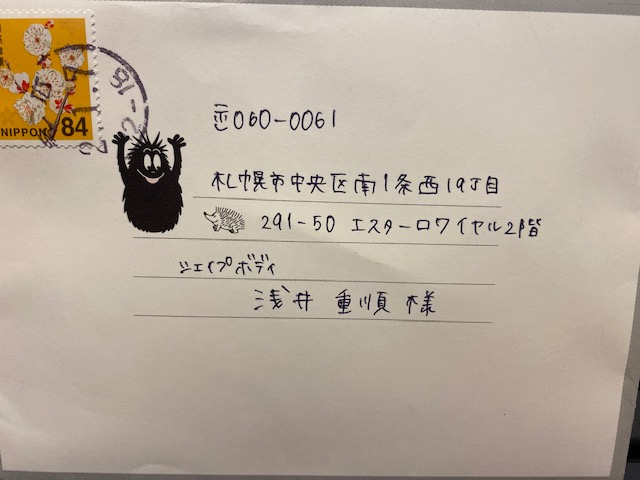 NIPPON 84
〒060-0061
札幌市中央区南1条西19丁目
291-50 エスターロワイヤル2階
シェイプボディ
浅井 重順 様